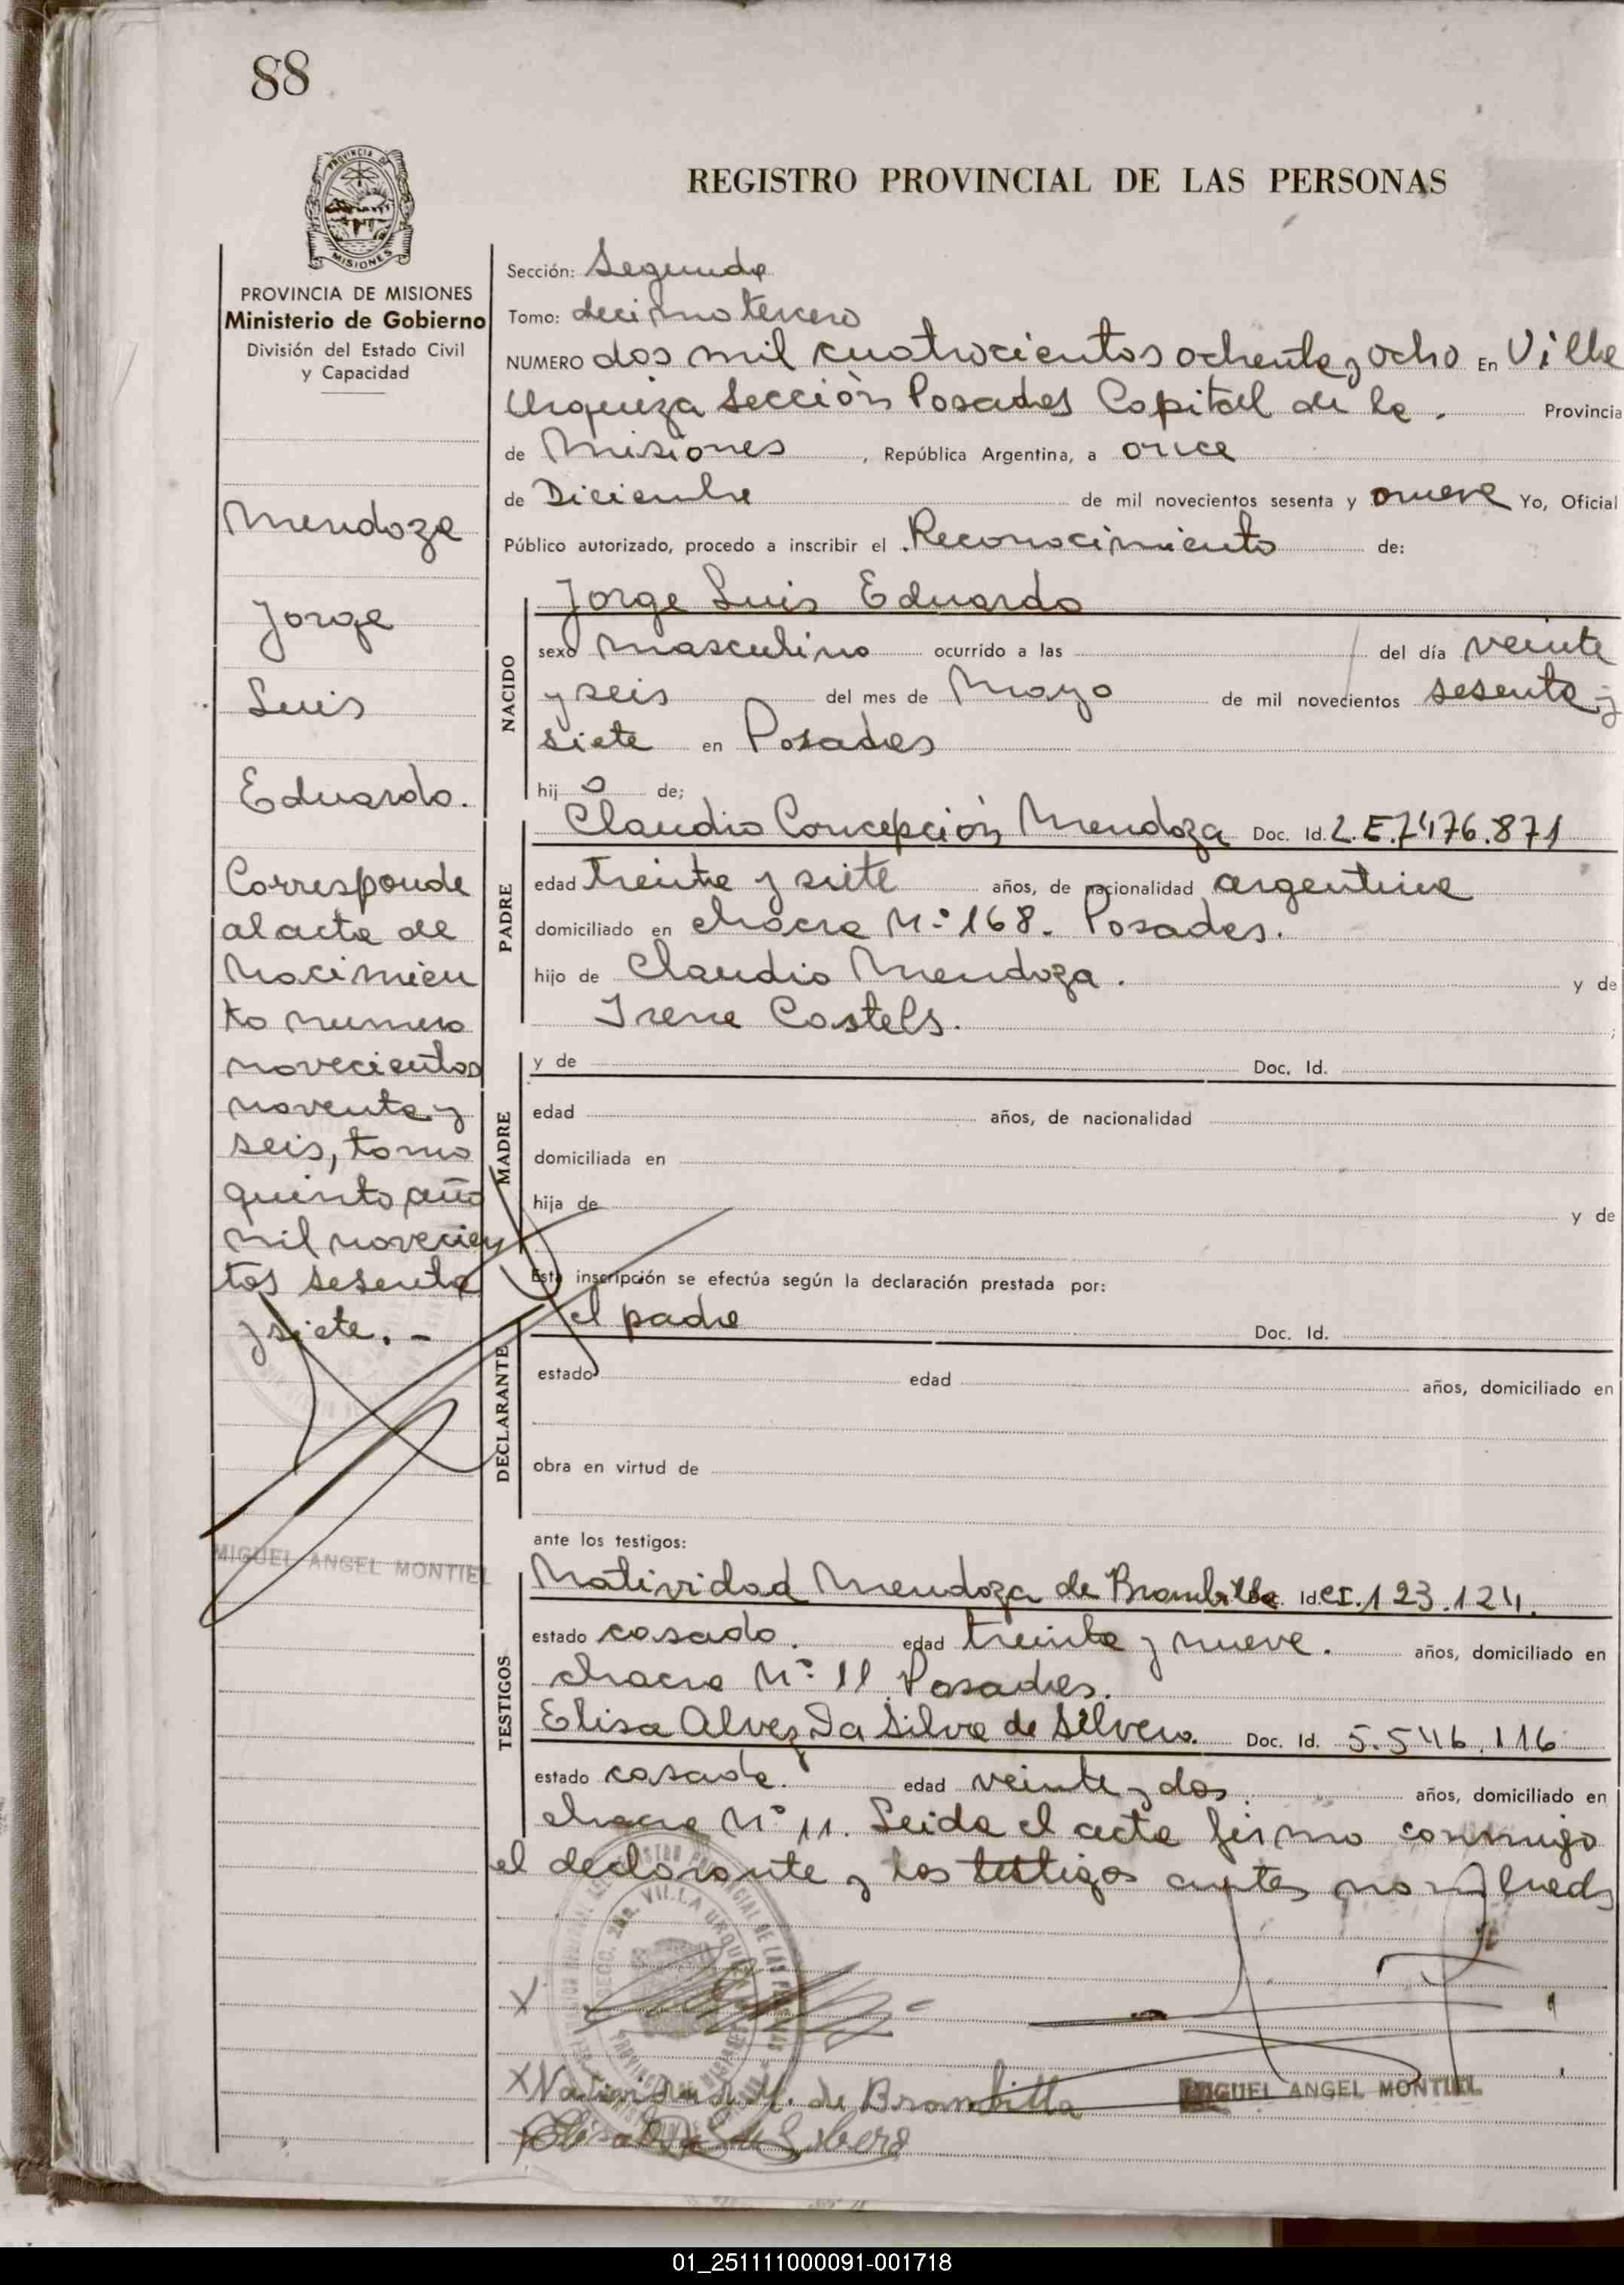 88
PROVINCIA DE
MISIONES
REGISTRO PROVINCIAL DE LAS PERSONAS
PROVINCIA DE MISIONES
Ministerio de Gobierno
División del Estado Civil
y Capacidad
Mendoza
Jorge
Luis
Eduardo.
Corresponde
al acta de
Nacimien
to numero
novecientos
noventa y
seis, tomo
quinto año
mil novecien
tos sesenta
y siete. -
MIGUEL ANGEL MONTIEL
Sección: Segunda
Tomo: decimo tercero
NUMERO dos mil cuatrocientos ochenta y ocho En Villa
Urquiza Sección Posadas Capital de la . Provincia
de Misiones , República Argentina, a once
de Diciembre de mil novecientos sesenta y nueve Yo, Oficial
Público autorizado, procedo a inscribir el Reconocimiento de:
NACIDO
Jorge Luis Eduardo
sexo masculino ocurrido a las del día veinte
y seis del mes de Mayo de mil novecientos sesenta y
siete en Posadas
hij o de;
PADRE
Claudio Concepción Mendoza Doc. Id. L.E.7476.871
edad treinta y siete años, de nacionalidad argentina
domiciliado en chacra Nº 168. Posadas.
hijo de Claudio Mendoza . y de
Irene Costels.
MADRE
y de Doc. Id.
edad años, de nacionalidad
domiciliada en
hija de y de
DECLARANTE
Esta inscripción se efectúa según la declaración prestada por:
el padre Doc. Id.
estado edad años, domiciliado en
obra en virtud de
TESTIGOS
ante los testigos:
Natividad Mendoza de Brambilla Id. CI.123.124.
estado casado. edad treinta y nueve. años, domiciliado en
chacra Nº 11 Posadas.
Elisa Alvez Da Silva de Silvero. Doc. Id. 5.546.116
estado casada. edad veinte y dos. años, domiciliado en
chacra Nº 11. Leida el acta firma conmigo
el declarante y los testigos antes nombrados
X
X Natividad M. de Brambilla
MIGUEL ANGEL MONTIEL
01_251111000091-001718